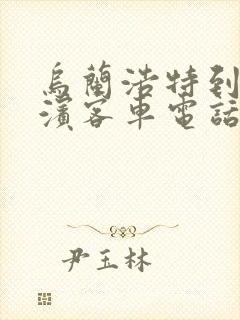 烏蘭浩特到
濱客車電話
尹玉林